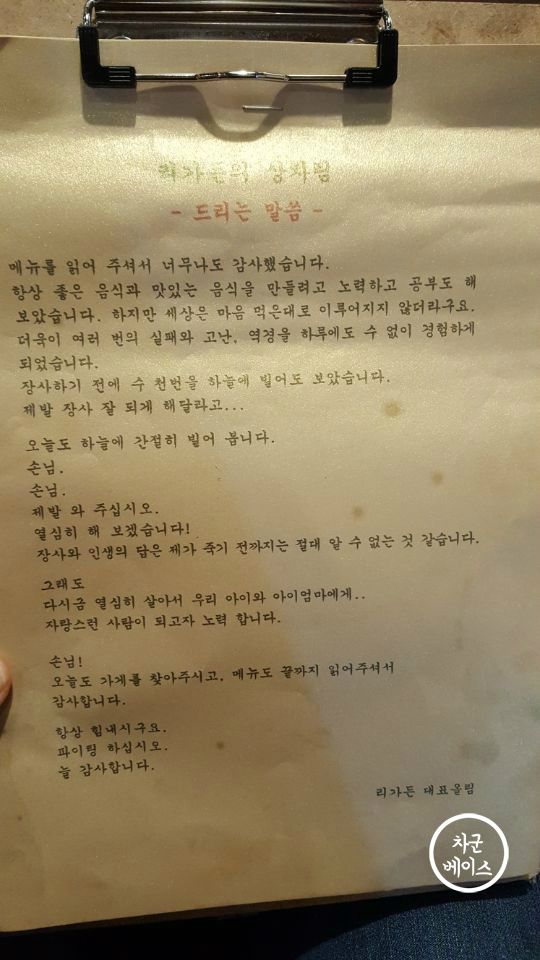 리가든의 상차림
- 드리는 말씀 -
메뉴를 읽어 주셔서 너무나도 감사했습니다.
항상 좋은 음식과 맛있는 음식을 만들려고 노력하고 공부도 해
보았습니다. 하지만 세상은 마음 먹은대로 이루어지지 않더라구요.
더욱이 여러 번의 실패와 고난, 역경을 하루에도 수 없이 경험하게
되었습니다.
장사하기 전에 수 천번을 하늘에 빌어도 보았습니다.
제발 장사 잘 되게 해달라고...
오늘도 하늘에 간절히 빌어 봅니다.
손님.
손님.
제발 와 주십시오.
열심히 해 보겠습니다!
장사와 인생의 답은 제가 죽기 전까지는 절대 알 수 없는 것 같습니다.
그래도
다시금 열심히 살아서 우리 아이와 아이엄마에게..
자랑스런 사람이 되고자 노력 합니다.
손님!
오늘도 가게를 찾아주시고, 메뉴도 끝까지 읽어주셔서
감사합니다.
항상 힘내시구요.
파이팅 하십시오.
늘 감사합니다.
리가든 대표올림
차군
베이스